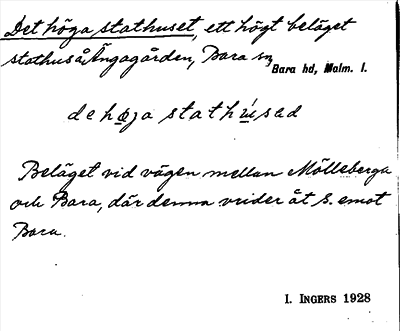 Det höga stathuset, ett högt beläget
stathus å Ängagården, Bara sn
Bara hd, Malm. l.
de høga stathúsəd
Beläget vid vägen mellan Mölleberga
och Bara, där denna vrider åt S. emot
Bara.
I. INGERS 1928